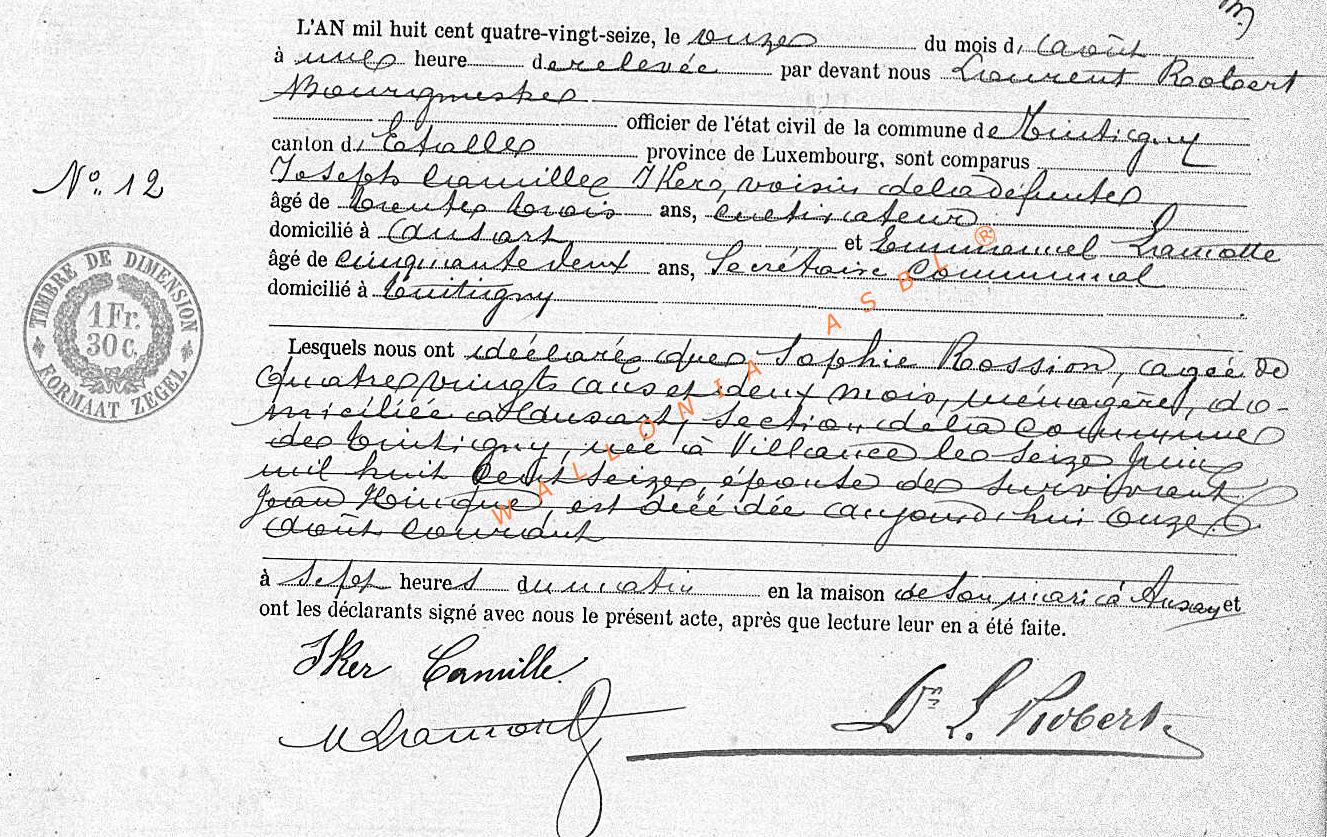 L'AN mil huit cent quatre-vingt-seize, le onze du mois d'août
à une heure de relevée par devant nous Laurent Robert
Bourgmestre
officier de l'état civil de la commune de Tintigny
canton d'Etalle province de Luxembourg, sont comparus
N° 12
Joseph Camille Iker, voisin de la défunte
âgé de trente trois ans, cultivateur
domicilié à Ansart et Emmanuel Lamotte
âgé de cinquante deux ans, Secrétaire Communal
domicilié à Tintigny
TIMBRE DE DIMENSION
1 Fr.
30 c.
FORMAAT ZEGEL
Lesquels nous ont déclaré que Sophie Rossion, agée de
quatre vingts ans et deux mois, ménagère, do-
miciliée à Ansart, section de la commune
de Tintigny, née à Villance le seize juin
mil huit cent seize, épouse de survivant
Jean Hinque, est décédée aujourd'hui onze
août courant
à sept heures du matin en la maison de son mari à Ansart et
ont les déclarants signé avec nous le présent acte, après que lecture leur en a été faite.
Iker Camille
Dr L. Robert
WALLONIA ASBL ®